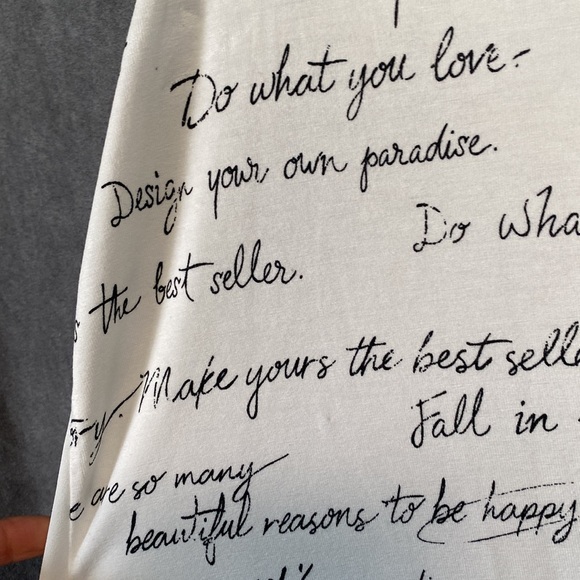 Do what you love-
Design your own paradise.
Do
the best seller.
Make yours the best
Fall in
are so many
beautiful reasons to be happy